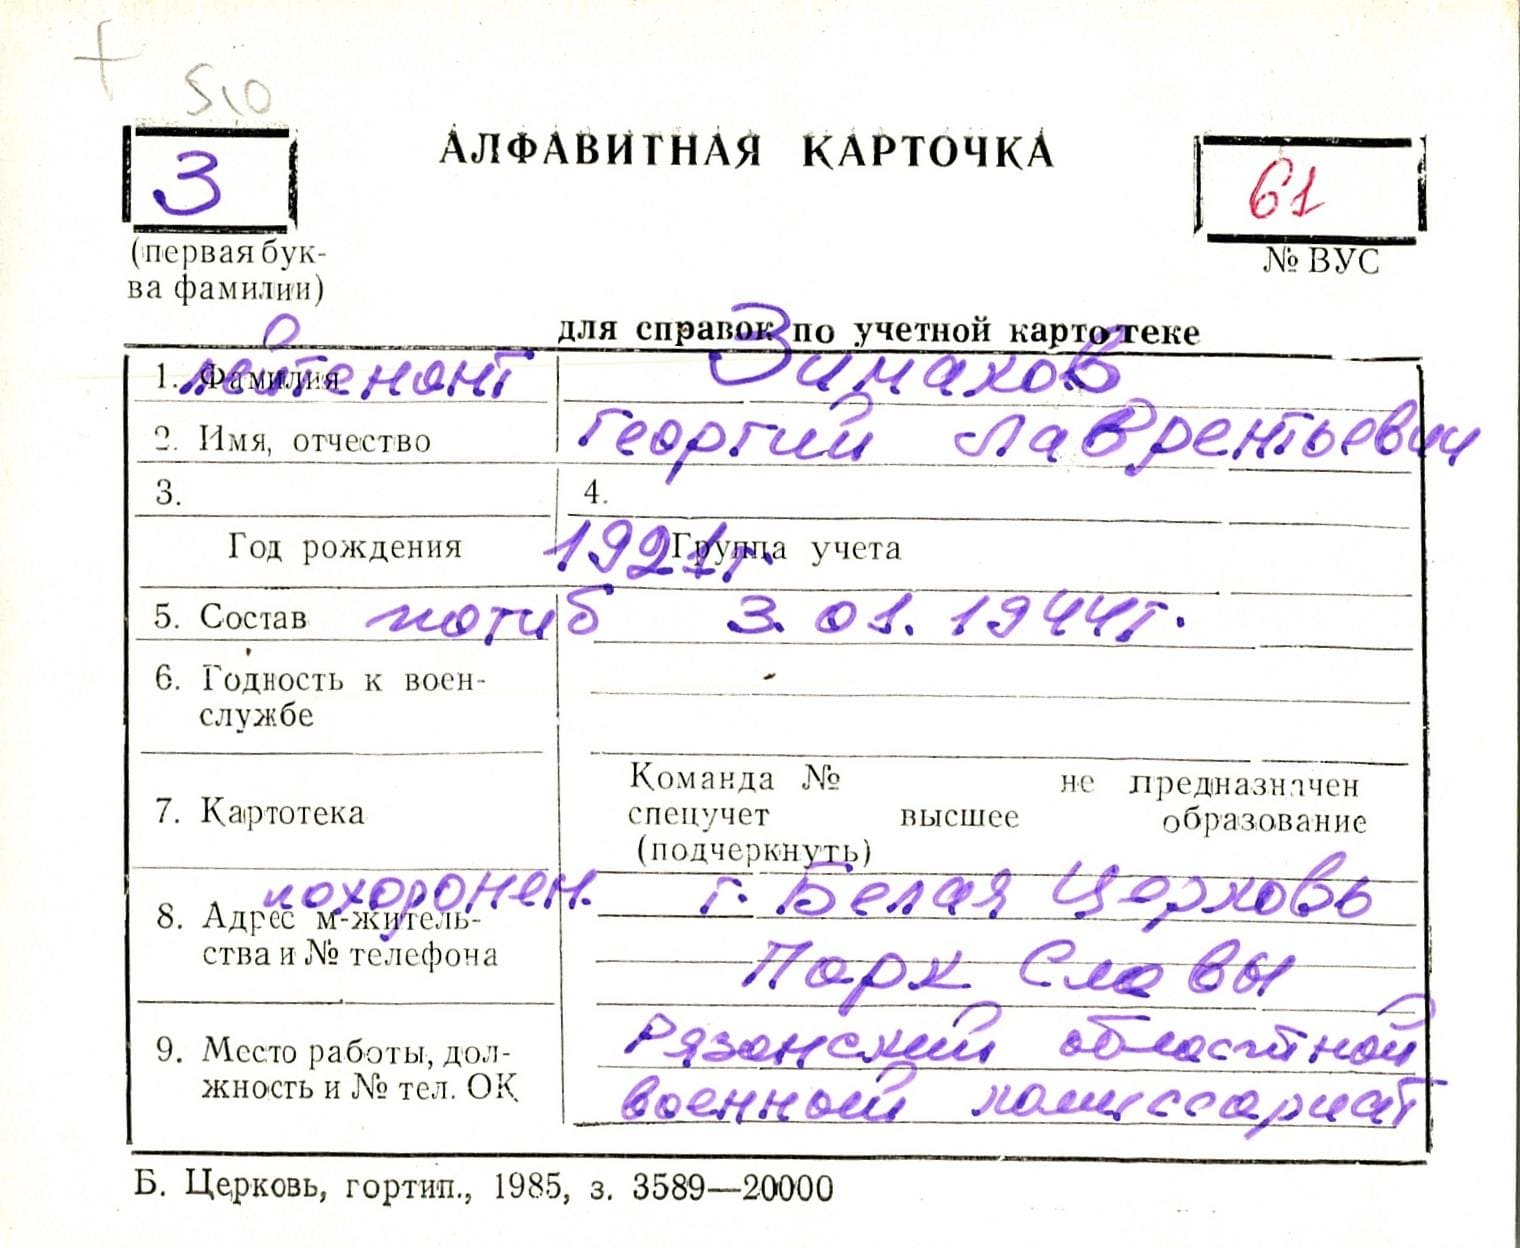 +
5,0
З
АЛФАВИТНАЯ КАРТОЧКА
61
(первая бук-
ва фамилии)
№ ВУС
для справок по учетной картотеке
1. Фамилия лейтенант Зимахов
2. Имя, отчество Георгий Лаврентьевич
3. 4.
Год рождения 1921г. Группа учета
5. Состав погиб 3.01.1944г.
6. Годность к воен-
службе
Команда № не предназначен
7. Картотека спецучет высшее образование
(подчеркнуть)
похоронен. г. Белая Церковь
8. Адрес м-житель-
ства и № телефона Парк Славы
9. Место работы, дол- Рязанский областной
жность и № тел. ОК военный комиссариат
Б. Церковь, гортип., 1985, з. 3589—20000